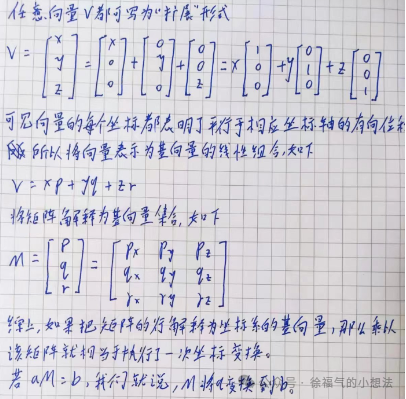 任意向量V都可写为"扩展"形式
V = [x y z] = [x 0 0] + [0 y 0] + [0 0 z] = x[1 0 0] + y[0 1 0] + z[0 0 1]
可见向量的每个坐标都表明了平行于相应坐标轴的有向位移
所以将向量表示为基向量的线性组合,如下
V = xp + yq + zr
将矩阵解释为基向量集合,如下
M = [p q r] = [px py pz
qx qy qz
rx ry rz]
综上,如果把矩阵的行解释为坐标系的基向量,那么乘以
该矩阵就相当于执行了一次坐标变换。
若aM=b,我们就说,M将a变换到b。
号·徐福气的小想法